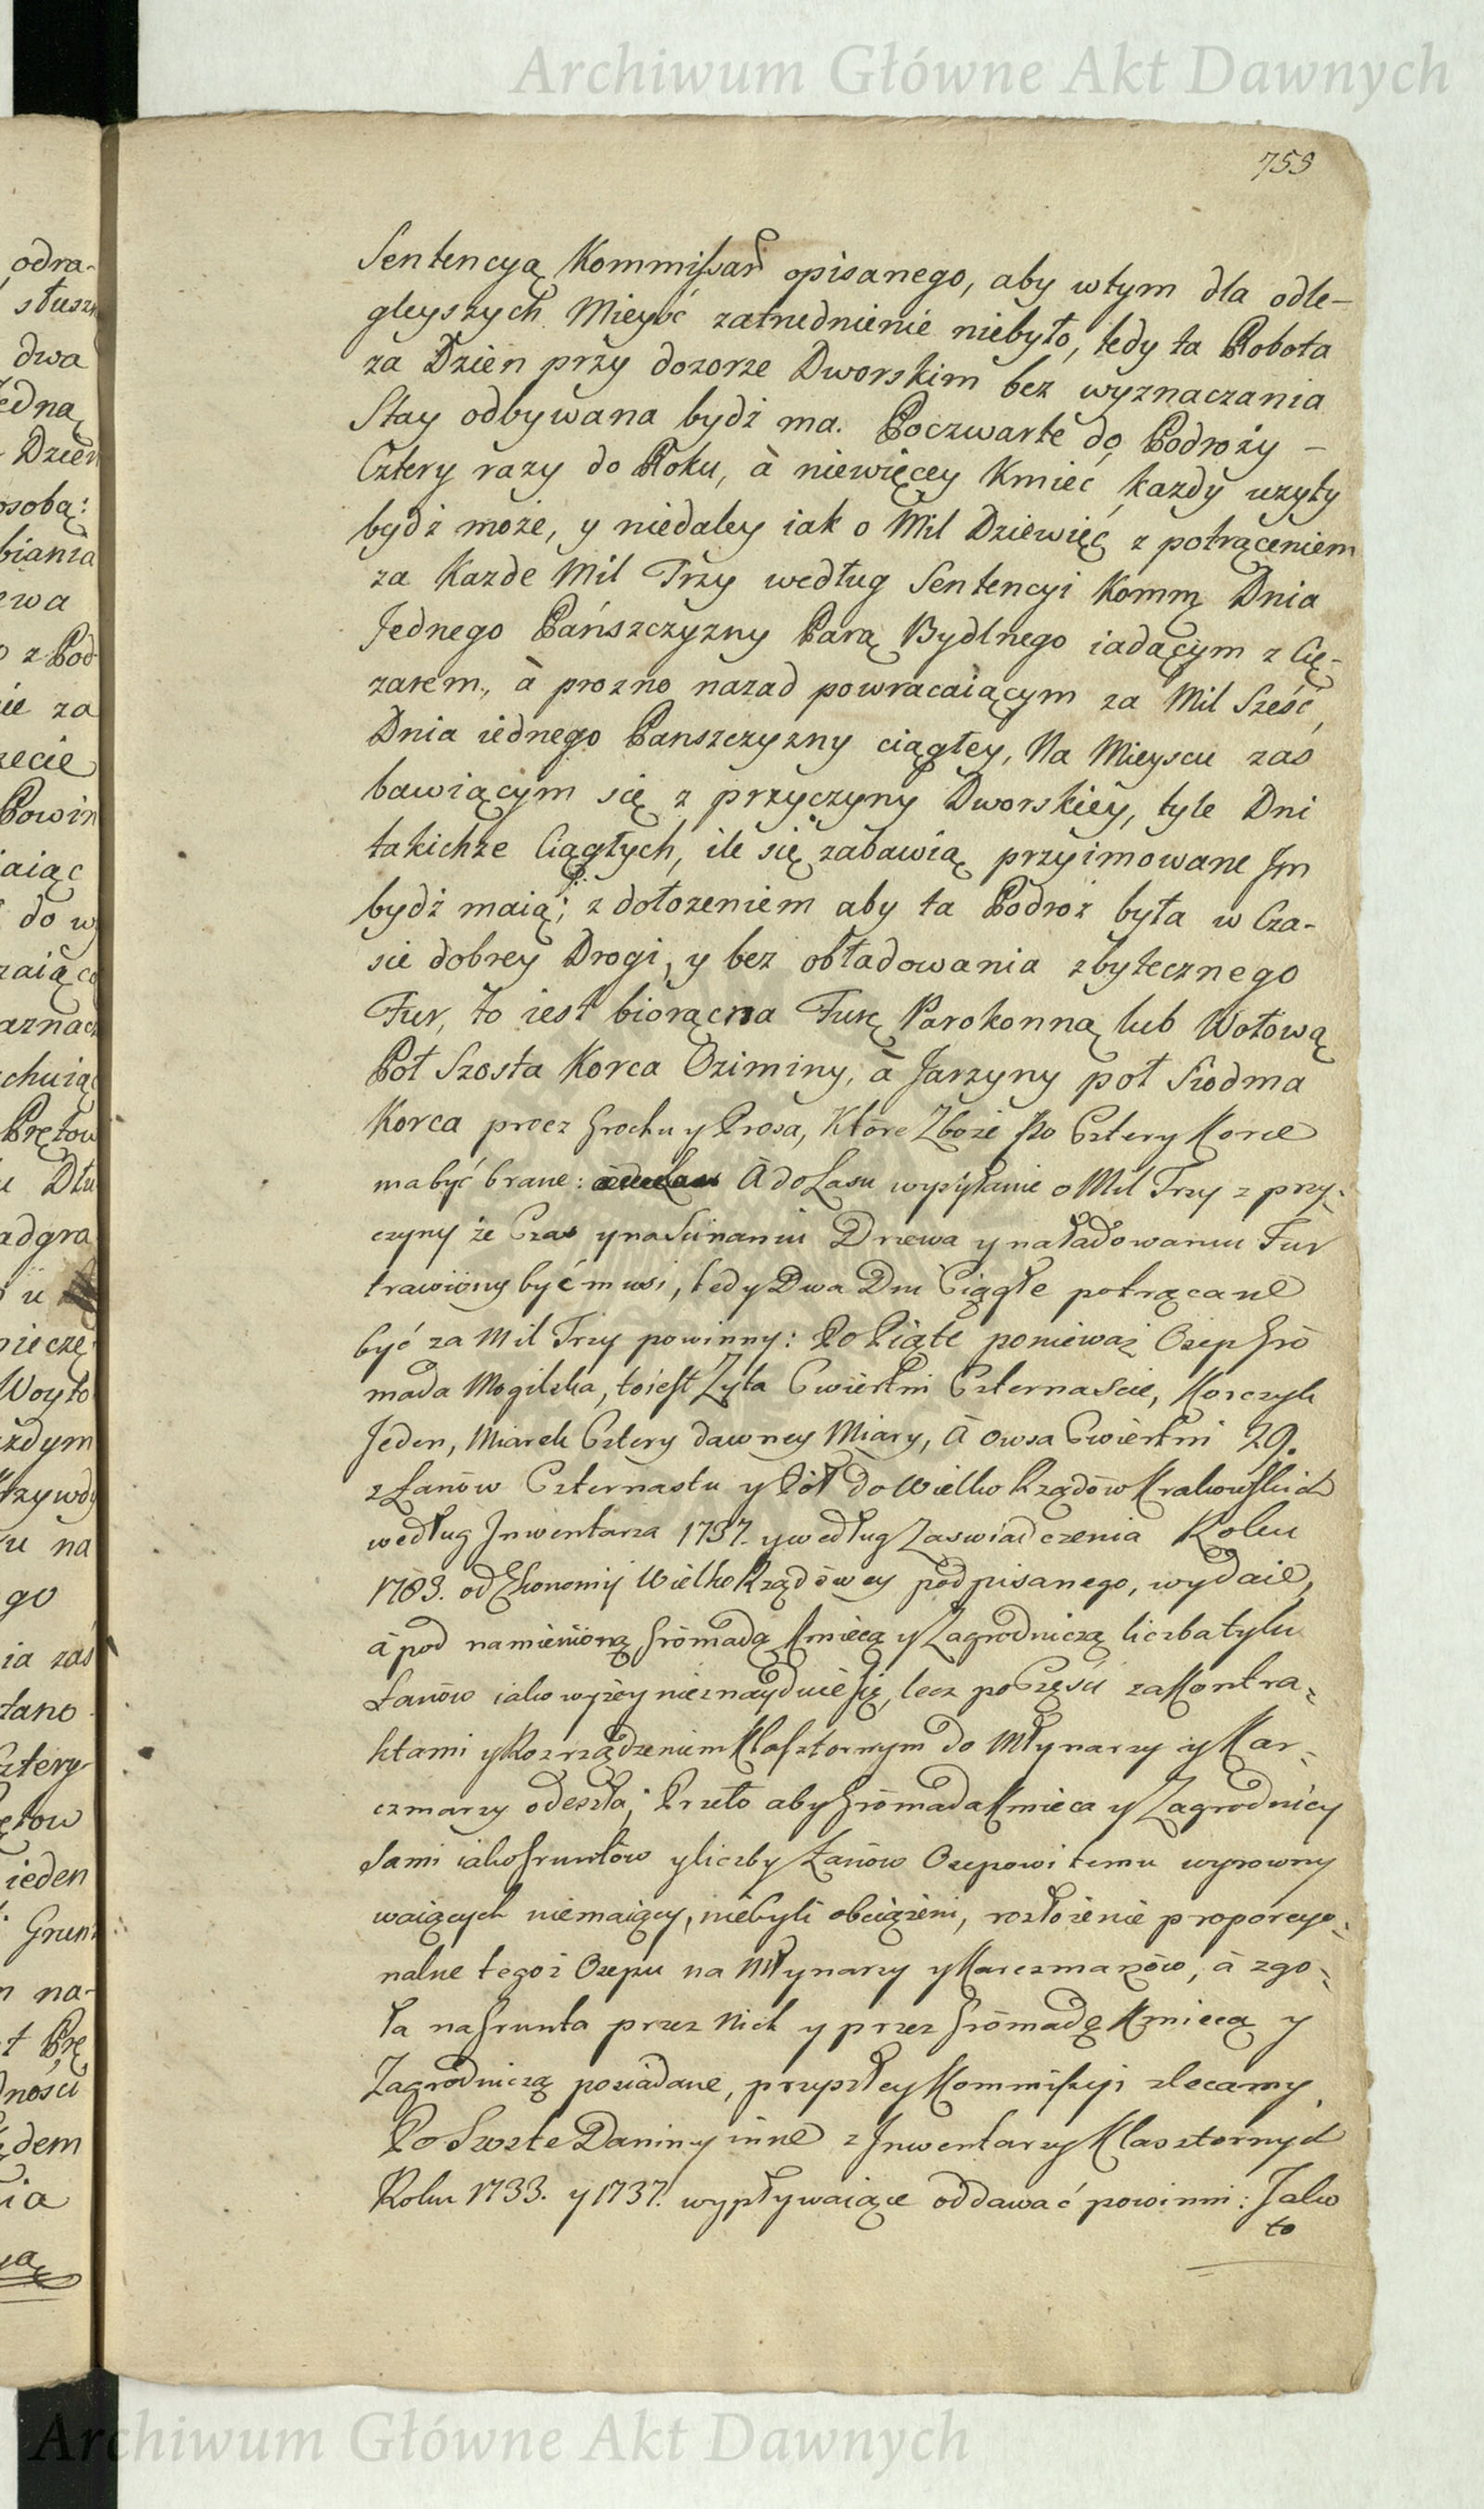 Archiwum Główne Akt Dawnych
759
Sentencyą Kommissar opisanego, aby wtym dla odle-
gleyszych Mieysć zatrudnienie niebyło, tedy ta Robota
za Dzien przy dozorze Dworskim bez wyznaczania
Stay odbywana bydź ma. Poczwarte do Podroży –
Cztery razy do Roku, à niewięcey Kmieć każdy uzyty
bydź może, y niedaley iak o Mil Dziewięć z potrąceniem
za Kazde Mil Trzy według Sentencyi Komm Dnia
Jednego Pańszczyzny Parą Bydlnego iadącym z Cię-
zarem, à prozno nazad powracaiącym za Mil Sześć,
Dnia iednego Panszczyzny ciągłey, Na Mieyscu zaś
bawiącym się z przyczyny Dworskiey, tyle Dni
takichże Ciągłych, ile się zabawią przyimowane Jm
bydź maią; z dołozeniem aby ta Podroż była w Cza-
sie dobrey Drogi, y bez obładowania zbytecznego
Fur, to iest biorąc na Furę Parokonną lub Wołową
Poł Szosta Korca Oziminy, à Jarzyny poł Siodma
Korca procz Grochu y Prosa, Które Zboże po Cztery Korce
ma być brane: A do Lasu wysyłanie o Mil Trzy z przy-
czyny że Czas y na Scinaniu Drzewa y naładowaniu Fur
trawiony być musi, tedy Dwa Dni Ciągłe potrącane
być za Mil Trzy powinny: Po Piąte ponieważ Osep Gro
mada Mogilska, toiest Zyta Cwiertni Czternascie, Korczyk
Jeden, Miarek Cztery dawney Miary, à Owsa Cwiertni 29.
z Łanów Czternastu y Pół do Wielko Rządów Krakowskich
według Jnwentarza 1737. y według Zaswiadczenia Roku
1783. od Ekonomij Wielko Rządówey podpisanego, wydaie,
à pod namienioną Gromadą Kmiecą y Zagrodniczą liczba tylu
Łanów iako wyżey nieznayduie się, lecz po Części za Kontra-
ktami y Rozrządzeniem Klasztornym do Młynarzy y Kar-
czmarzy odeszła; Przeto aby Gromada Kmieca y Zagrodnicy
Sami iako Gruntów y liczby Łanów Osepowi temu wyrowny
waiących niemaiący, niebyli obciążeni, rozłożenie proporcyo-
nalne tegoż Osepu na Młynarzy y Karczmarzów, à zgo-
ła na Grunta przez Nich y przez Gromadę Kmiecą y
Zagrodniczą posiadane, przyszłey Kommissyi zlecamy.
Po Szoste Daniny inne z Jnwentarzy Klasztornych
Roku 1733. y 1737. wypływaiące oddawać powinni: Jako
to
Archiwum Główne Akt Dawnych